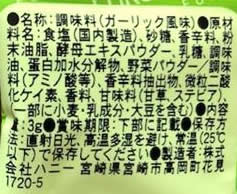 ●名称:調味料(ガーリック風味)●原材
料名:食塩(国内製造)、砂糖、香辛料、粉
末油脂、酵母エキスパウダー、乳糖、調味
油、蛋白加水分解物、野菜パウダー/調味
料(アミノ酸等)、香辛料抽出物、微粒二酸
化ケイ素、香料、甘味料(甘草、ステビア)、
(一部に小麦・乳成分・大豆を含む)●内容
量:3g●賞味期限:下部に記載●保存方
法:直射日光、高温多湿を避け、常温(25℃
以下)で保存してください●製造者:株式
会社ハニー 宮崎県宮崎市高岡町花見
1720-5